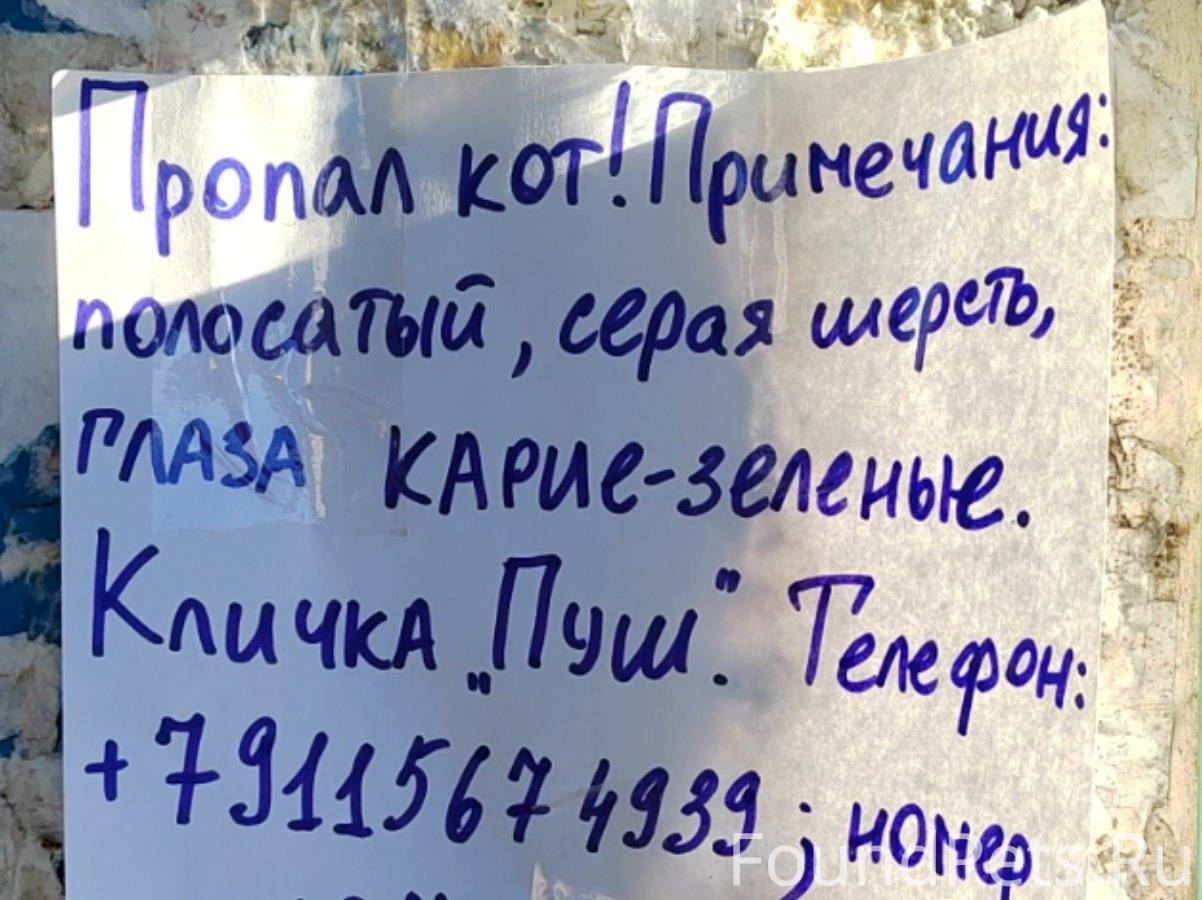 Пропал кот! Примечания:
полосатый, серая шерсть,
глаза карие-зеленые.
Кличка „Пуш". Телефон:
+79115674939; номер
FoundPets.Ru